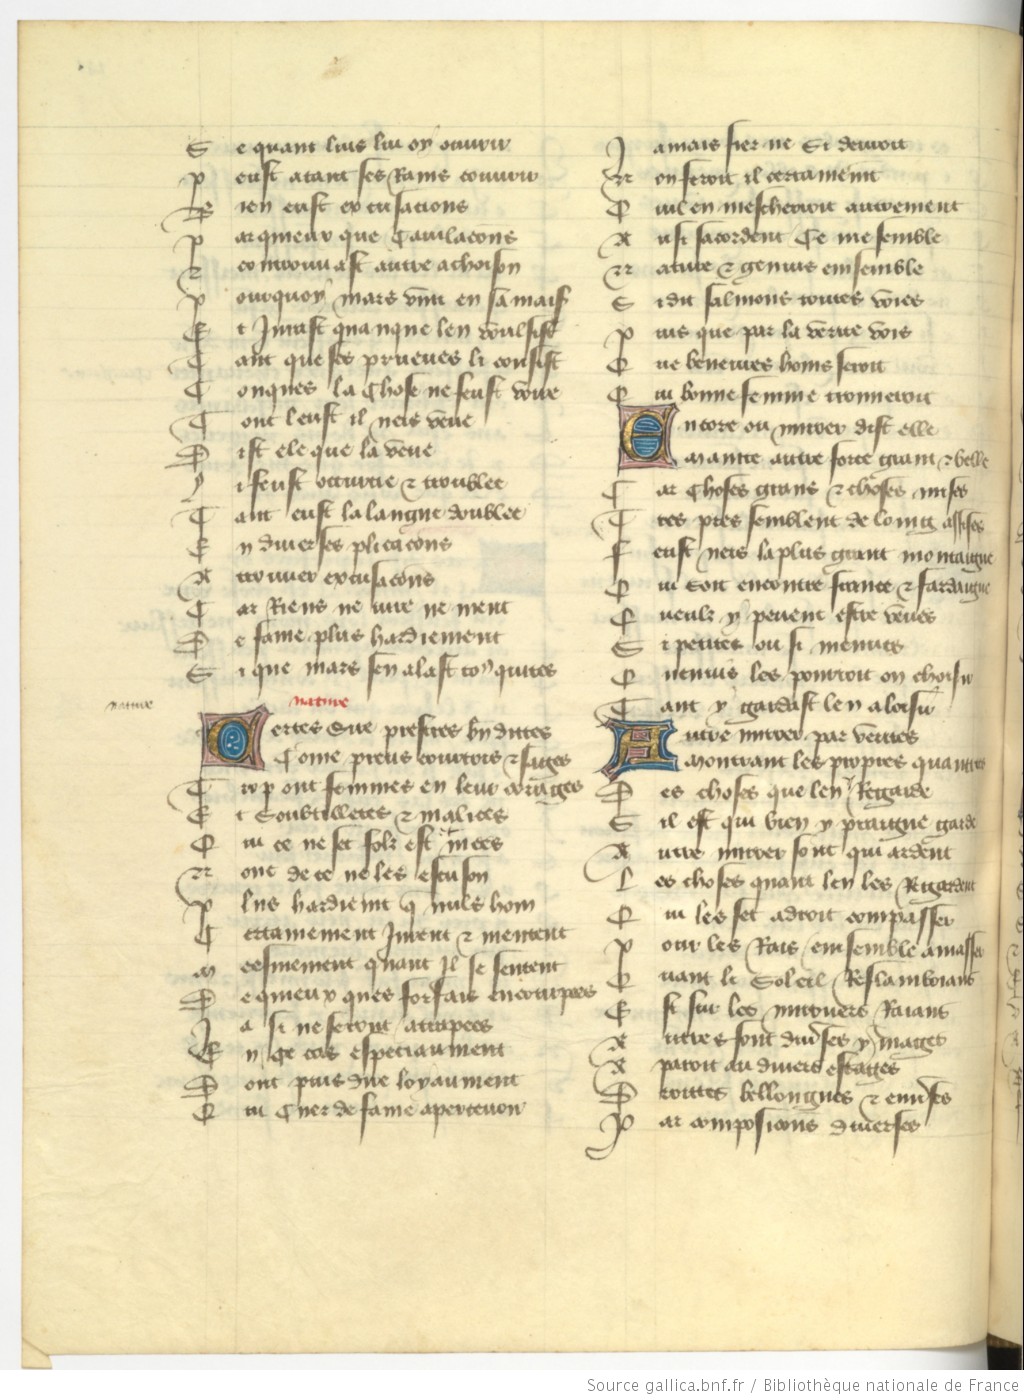 S e quant luis lui oy ouurir
P eust atant ses Rains couurir
R ien eust excusacions
P ar quieux que Cauilacons
R controuuast autre achoison
P ourquoy mars vint en sa maiso
E t Jurast quanque len voulsist
T ant que ses prueues li consist
C onques la Chose ne feust voire
T ont leust il neis veue
D ist ele que la veue
Y i feust occurcie & troublee
T ant eust la langue doublee
E n diuerses plicacons
A trouuer excusacons
C ar Riens ne iure ne ment
D e fame plus hardiement
S i que mars sen alast touz quites
nature
nature
C ertes Sire prestres bn dittes
Come preus courtois & sages
T rop ont femmes en leur courages
E t Soubtilletes & malices
Q ui ce ne set folz est & nices
N onc de ce ne les escuson
P lus hardiemt q nuls hom
C ertainement Jurent & mentent
M eesmement quant Jl se sentent
D e quieux ques forfais encoulpees
J a si ne seront atrapees
E n ce cas especiaument
D ont puis dire loyaument
Q ui Cuer de fame aperceuoir
J amais fier ne Si deuroit
N on feroit il certainemt
Q uil en mescherroit autrement
A nsi sacordent Ce me semble
N ature & genius emsemble
S i dit salmons toutes voies
P uis que par la verite vois
Q ue beneures homs seroit
Q ui bonne femme trouueroit
E ncore ou miroer dist elle
Maintre autre force grant & belle
C ar Choses grans & choses mises
T res pres semblent de loing assises
F eust neis la plus grant montaigne
Q ui Soit encontre france & sardaigne
Q ueulz y peuent estre veues
S i petites ou si menues
Q uenuis les pourroit on choisir
T ant y gardast len a loisir
A utre miroer par verites
Monstrant les propres quantites
D es choses que len y Regarde
S il est qui bien y praigne garde
A utre miroer sont qui ardent
L es choses quant len les Regardent
Q ui les set adroit compasser
P our les Rais emsemble amasser
Q uant li Soleil Reflamboians
E st sur les mirouers Raians
A utres font diuses ymages
A paroir au diuers estages
D roittes bellongues & enuses
P ar composicions diuerses
Source gallica.bnf.fr / Bibliothèque nationale de France